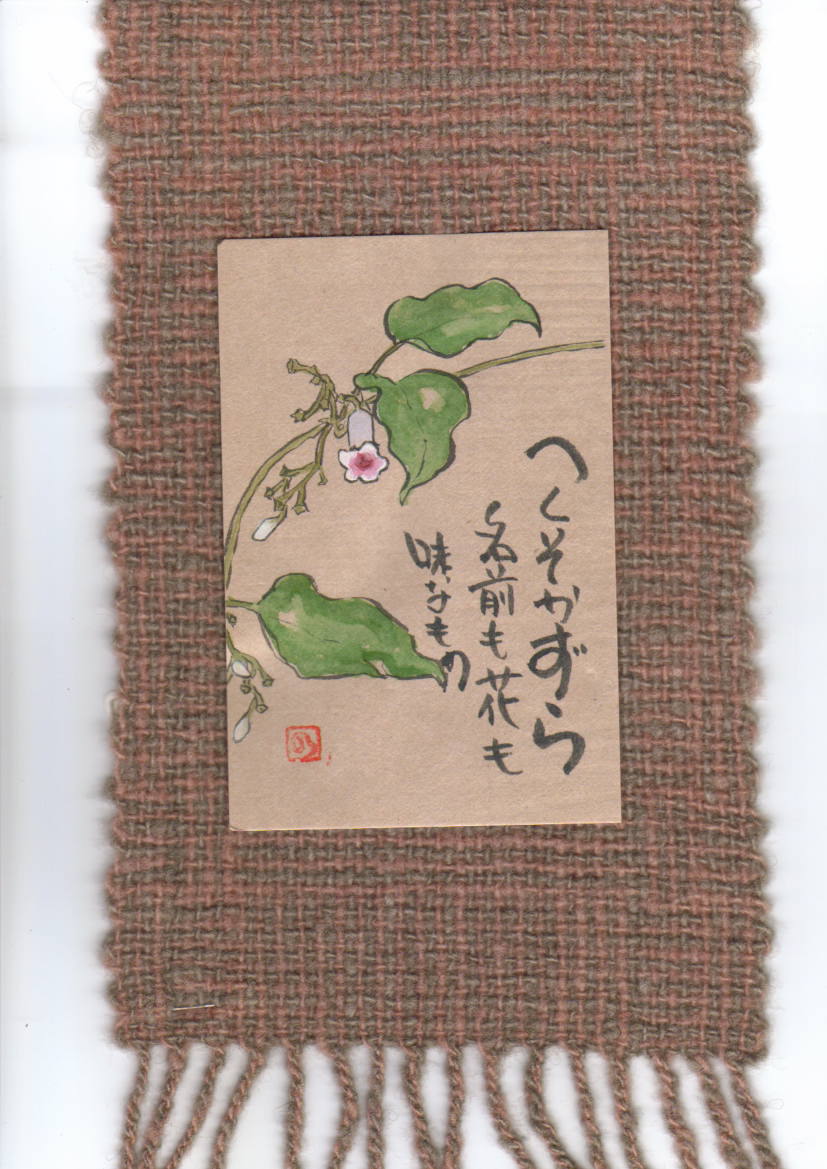 へくそかずら
名前も花も
味なもの